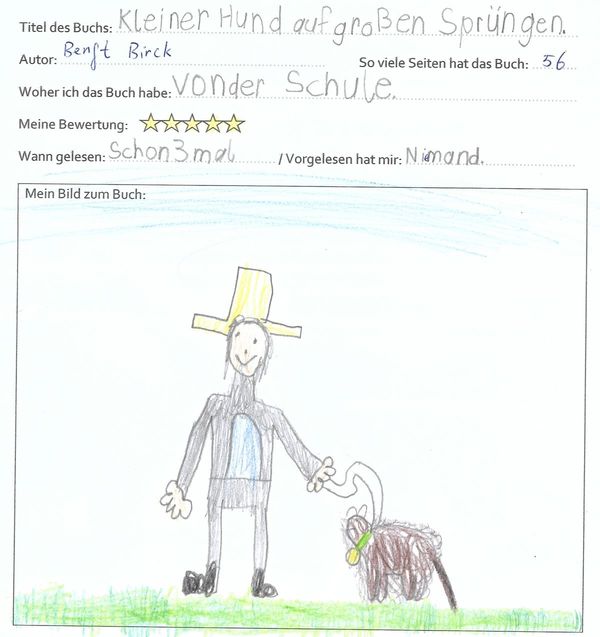 Titel des Buchs: Kleiner Hund auf großen Sprüngen.
Autor: Benft Birck So viele Seiten hat das Buch: 56
Woher ich das Buch habe: Vonder Schule.
Meine Bewertung:
Wann gelesen: Schon 3 mal / Vorgelesen hat mir: Nimand.
Mein Bild zum Buch: